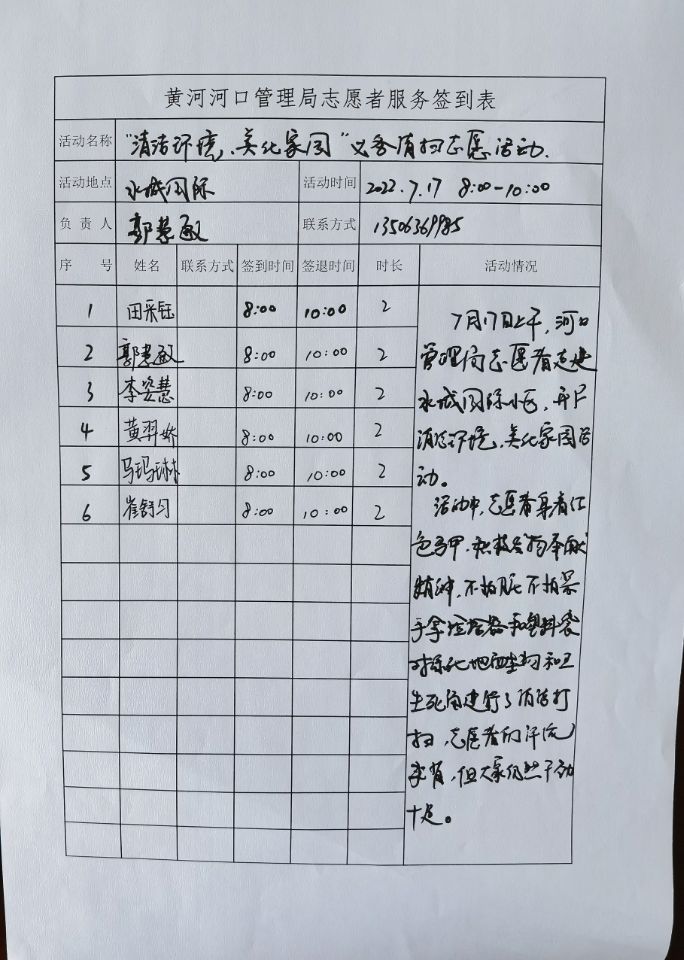 黄河河口管理局志愿者服务签到表
活动名称 "清洁环境,美化家园"义务清扫志愿活动.
活动地点 水城国际 活动时间 2022.7.17 8:00-10:00
负责人 郭慧敏 联系方式 13506369985
序号 姓名 联系方式 签到时间 签退时间 时长 活动情况
1 田采钰 8:00 10:00 2
2 郭慧敏 8:00 10:00 2
3 李姿慧 8:00 10:00 2
4 黄羿娇 8:00 10:00 2
5 马玛琳 8:00 10:00 2
6 崔舒匀 8:00 10:00 2
7月17日上午,河口
管理局志愿者走进
水城国际小区,开展
清洁环境,美化家园活
动。
活动中,志愿者身着红
色马甲,积极发扬奉献
精神,不怕脏不怕累
手拿垃圾器和塑料袋
对绿化地面垃圾和卫
生死角进行了清洁打
扫,志愿者们汗流
浃背,但大家仍然干劲
十足。